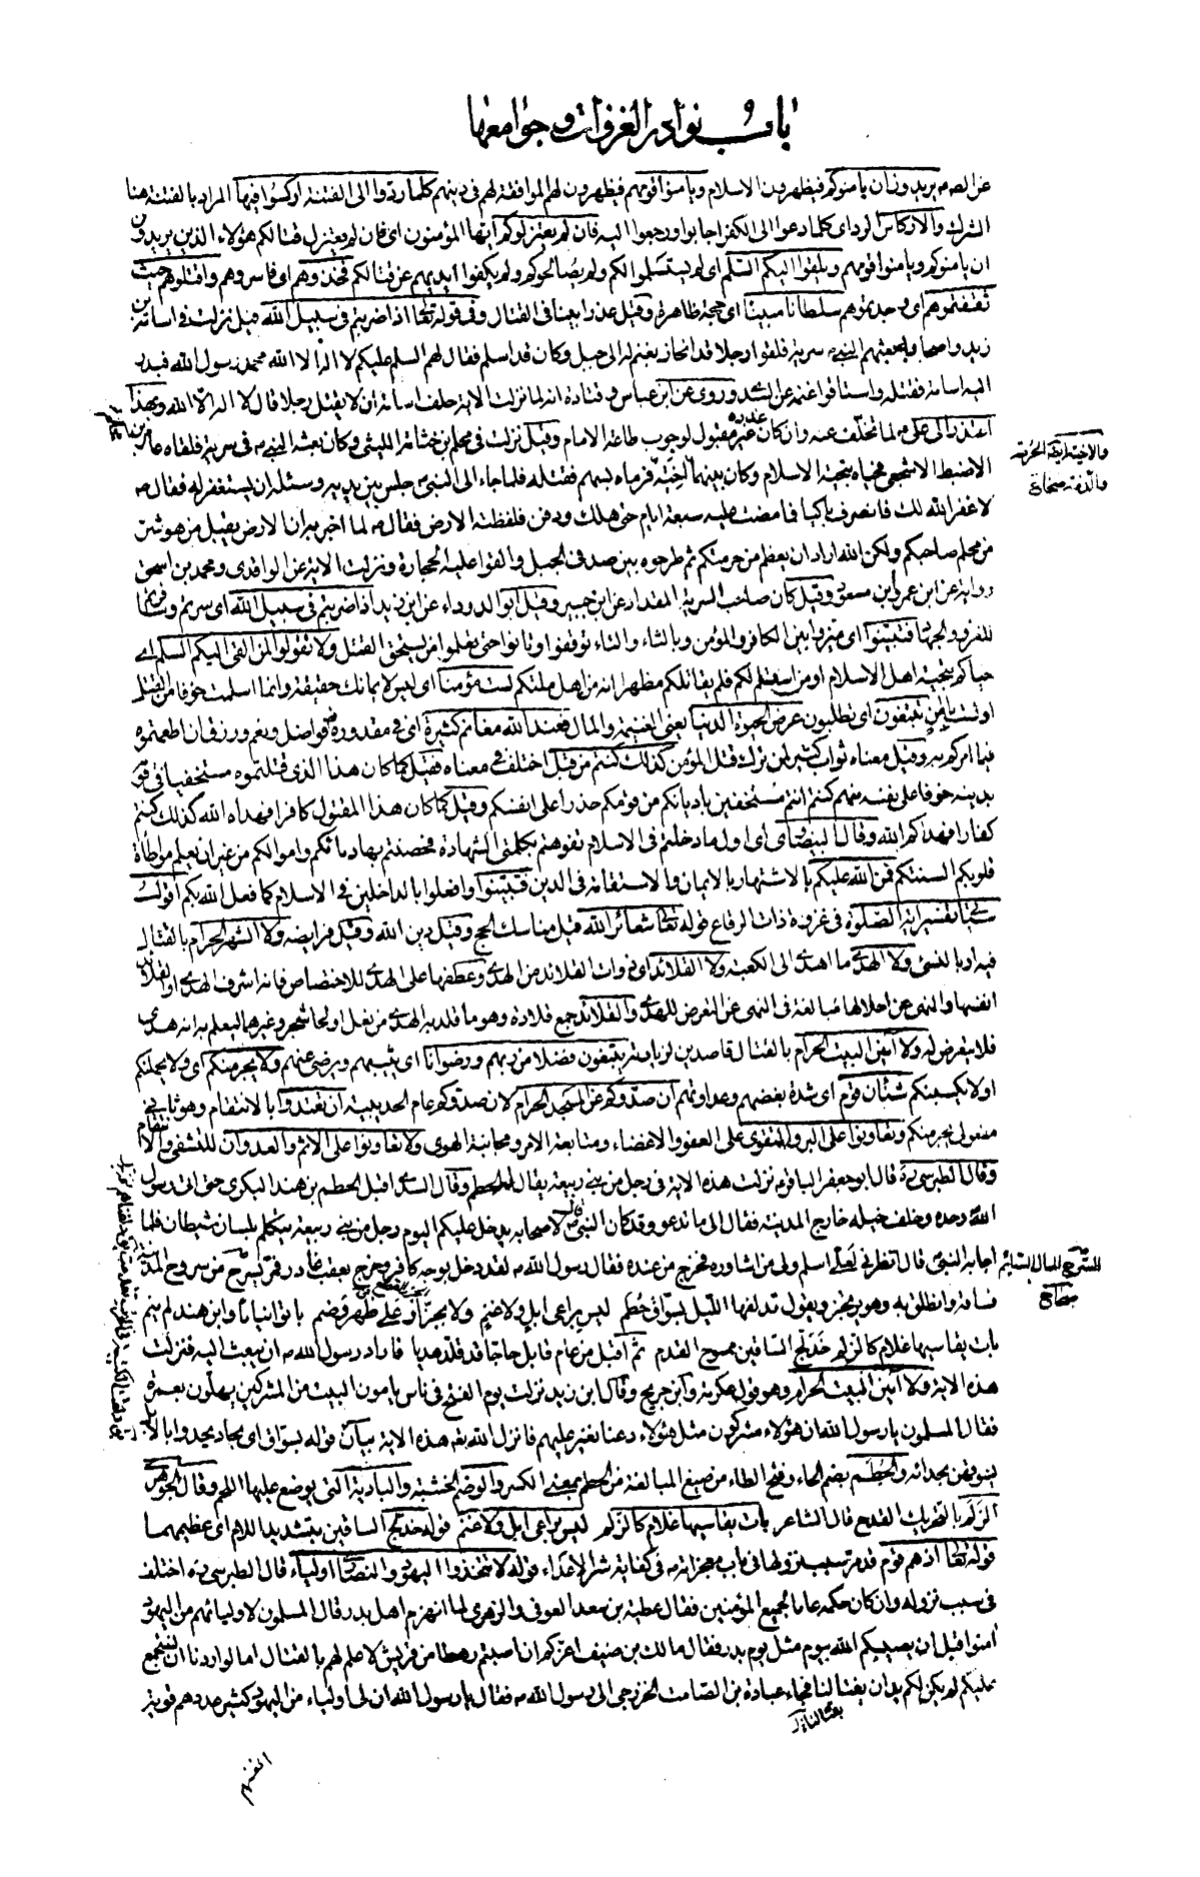 باب نوادر الغزوات وجوامعها
عن الصم يريدون ان يامنوكم فيظهرون الاسلام ويامنوا قومهم فيظهرون لهم الموافقة لهم في دينهم كلما ردوا الى الفتنة اركسوا فيها المراد بالفتنة هنا
الشرك والاركاس الرد اي كلما دعوا الى الكفر اجابوا ورجعوا اليه فان لم يعتزلوكم ايها المؤمنون اي فان لم يعتزل قتالكم هؤلاء الذين يريدون
ان يامنوكم ويامنوا قومهم ويلقوا اليكم السلم اي لم يستسلموا لكم ولم يصالحوكم ولم يكفوا ايديهم عن قتالكم فخذوهم اي فاسروهم واقتلوهم حيث
ثقفتموهم اي وجدتموهم سلطانا مبينا اي حجة ظاهرة وقيل عذرا بينا في القتال وفي قوله تعالى اذا ضربتم في سبيل الله قيل نزلت في اسامة بن
زيد واصحابه بعثهم النبي ص سرية فلقوا رجلا قد انحاز بغنم له الى جبل وكان قد اسلم فقال لهم السلم عليكم لا اله الا الله محمد رسول الله فبدر
اليه اسامة فقتله واستاقوا غنمه عن السدي وروى عن ابن عباس وقتادة انه لما نزلت الاية حلف اسامة ان لا يقتل رجلا قال لا اله الا الله وبهذا
اعتذر الى علي ع لما تخلف عنه وان كان عذره غير مقبول لوجوب طاعة الامام وقيل نزلت في محلم بن جثامة الليثي وكان بعثه النبي ص في سرية فلقاه عامر بن
الاضبط الاشجعي فحياه بتحية الاسلام وكان بينهما اخنة فرماه بسهم فقتله فلما جاء الى النبي جلس بين يديه وسئله ان يستغفر له فقال ص
لا غفر الله لك فانصرف باكيا فما مضت عليه سبعة ايام حتى هلك ودفن فلفظته الارض فقال ص لما اخبر به ان الارض يقبل من هو شر
من محلم صاحبكم ولكن الله اراد ان يعظم من حرمتكم ثم طرحوه بين صدفي الجبل والقوا عليه الحجارة ونزلت الاية عن الواقدي ومحمد بن اسحق
رواية عن ابن عمر وابن مسعود وقيل كان صاحب السرية المقداد عن ابن جبير وقيل ابو الدرداء عن ابن زيد اذا ضربتم في سبيل الله اي سرتم وسافرتم
للغزو والجهاد فتبينوا اي ميزوا بين الكافر والمؤمن وبالثاء والتاء توقفوا وتانوا حتى تعلموا من يستحق القتل ولا تقولوا لمن القى اليكم السلم اي
حياكم بتحية اهل الاسلام او من استسلم لكم فلم يقاتلكم مظهرا انه من اهل ملتكم لست مؤمنا اي ليس لايمانك حقيقة وانما اسلمت خوفا من القتل
او لست بامن تبتغون اي تطلبون عرض الحيوة الدنيا يعني الغنيمة والمال فعند الله مغانم كثيرة اي في مقدوره فواضل ونعم ورزق ان اطعتموه
فيما امركم به وقيل معناه ثواب كثير لمن ترك قتل المؤمن كذلك كنتم من قبل اختلف في معناه فقيل كما كان هذا الذي قتلتموه مستخفيا في قومه
بدينه خوفا على نفسه منهم كنتم انتم مستخفين باديانكم من قومكم حذرا على انفسكم وقيل كما كان هذا المقتول كافرا فهداه الله كذلك كنتم
كفارا فهداكم الله وقال البيضاوي اي اول ما دخلتم في الاسلام تفوهتم بكلمتي الشهادة فحصنتم بها دمائكم واموالكم من غير ان يعلم مواطاة
قلوبكم السنتكم فمن الله عليكم بالاشتهار بالايمان والاستقامة في الدين فتبينوا وافعلوا بالداخلين في الاسلام كما فعل الله بكم اقول
سيجئ تفسير اية الصلوة في غزوة ذات الرقاع قوله تعالى شعائر الله قيل مناسك الحج وقيل دين الله وقيل فرايضه ولا الشهر الحرام بالقتال
فيه او بالنسئ ولا الهدي ما اهدي الى الكعبة ولا القلائد اي ذوات القلائد من الهدي وعطفها على الهدي للاختصاص فانه اشرف الهدي او القلائد
انفسها والنهي عن احلالها مبالغة في النهي عن التعرض للهدي والقلائد جمع قلادة وهو ما قلد به الهدي من نعل او لحا شجر وغيرهما ليعلم به انه هدي
فلا يتعرض له ولا امين البيت الحرام بالقتال قاصدين لزيارته يبتغون فضلا من ربهم ورضوانا اي يثيبهم ويرضى عنهم ولا يجرمنكم اي ولا يحملنكم
او لا يكسبنكم شنئان قوم اي شدة بغضهم وعداوتهم ان صدوكم عن المسجد الحرام لان صدوكم عام الحديبية ان تعتدوا بالانتقام وهو ثاني
مفعولي يجرمنكم وتعاونوا على البر والتقوى على العفو والاغضاء ومتابعة الامر ومجانبة الهوى ولا تعاونوا على الاثم والعدوان للتشفي والانتقام
وقال الطبرسي ره قال ابو جعفر الباقر ع نزلت هذه الاية في رجل من بني ربيعة يقال له الحطم وقال السدي اقبل الحطم بن هند البكري حتى اتى رسول
الله وحده وخلف خيله خارج المدينة فقال الى ما تدعو وقد كان النبي قال لاصحابه يدخل عليكم اليوم رجل من بني ربيعة يتكلم بلسان شيطان فلما
اجابه النبي قال انظرني لعلي اسلم ولي من اشاوره فخرج من عنده فقال رسول الله ص لقد دخل بوجه كافر وخرج بعقب غادر فمر بسرح من سروح المدينة
فساقه وانطلق به وهو يرتجز ويقول قد لفها الليل بسواق حطم ليس براعي ابل ولا غنم ولا بجزار على ظهر وضم باتوا نياما وابن هند لم ينم
بات يقاسيها غلام كالزلم خدلج الساقين ممسوح القدم ثم اقبل من عام قابل حاجا قد قلد هديا فاراد رسول الله ص ان يبعث اليه فنزلت
هذه الاية ولا امين البيت الحرام وهو قول عكرمة وابن جريج وقال ابن زيد نزلت يوم الفتح في ناس يامون البيت من المشركين يهلون بعمرة
فقال المسلمون يا رسول الله ان هؤلاء مشركون مثل هؤلاء دعنا نغير عليهم فانزل الله تعه هذه الاية بيان قوله بسواق اي بحاد يحدوا بالابل
يسوقهن بحدائه والحطم بضم الحاء وفتح الطاء من صيغ المبالغة من الحطم بمعنى الكسر والوضم الخشبة والبادية التي يوضع عليها اللحم وقال الجوهري
الزلم بالتحريك القدح قال الشاعر بات يقاسيها غلام كالزلم ليس براعي ابل ولا غنم قوله خدلج الساقين بتشديد اللام اي عظيمهما
قوله تعالى اذ هم قوم قد مر سبب نزولها في باب معجزاته ص في كفاية شر الاعداء قوله لا تتخذوا اليهود والنصارى اولياء قال الطبرسي ره اختلف
في سبب نزوله وان كان حكمه عاما لجميع المؤمنين فقال عطية بن سعد العوفي والزهري لما انهزم اهل بدر قال المسلمون لاوليائهم من اليهود
امنوا قبل ان يصيبكم الله بيوم مثل يوم بدر فقال مالك بن ضيف اغركم ان اصبتم رهطا من قريش لا علم لهم بالقتال اما لو اردنا ان نستجمع
عليكم لم يكن لكم يدان بقتالنا فجاء عبادة بن الصامت الخزرجي الى رسول الله ص فقال يا رسول الله ان لي اولياء من اليهود كثير عددهم قوية
انفسهم